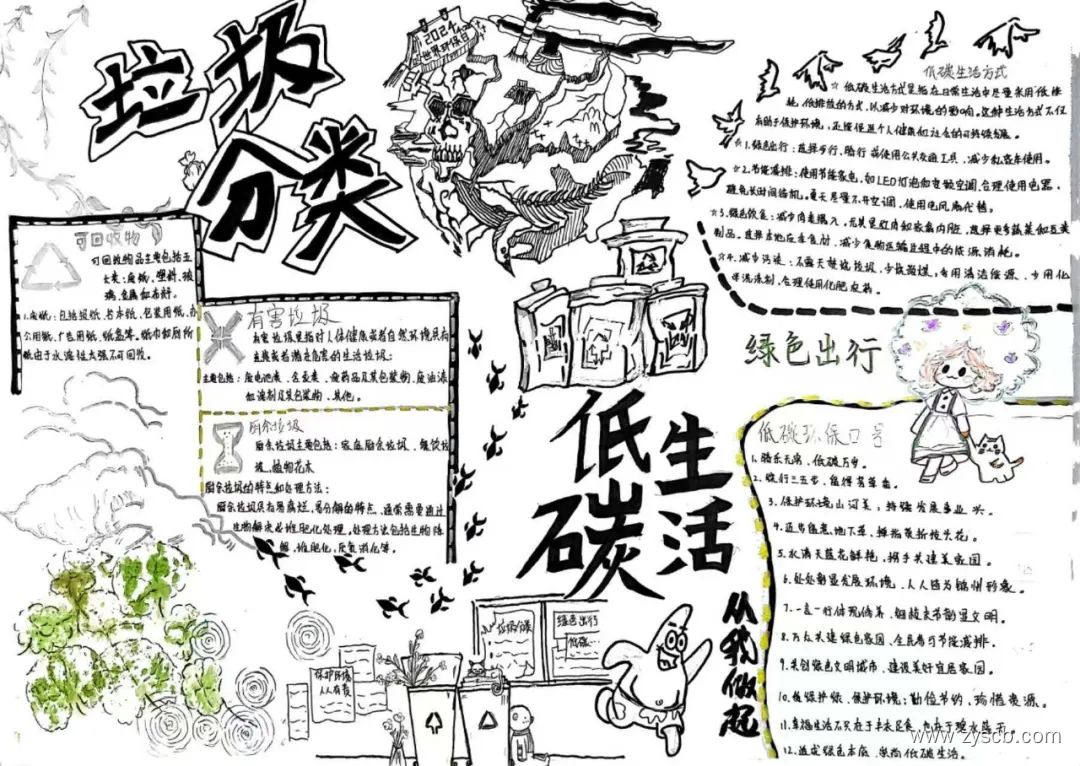 垃圾
分类
2024
世界环保日
低碳生活方式
☆ 低碳生活方式是指在日常生活中尽量采用低能
耗、低排放的方式,以减少对环境的影响。这种生活方式不仅
有助于保护环境,还能促进个人健康和社会的可持续发展。
☆1.绿色出行:选择步行、骑行或使用公共交通工具,减少私家车使用。
☆2.节能减排:使用节能家电,如LED灯泡和变频空调,合理使用电器,
避免长时间待机。夏天尽量不开空调,使用电风扇代替。
☆3.绿色饮食:减少肉类摄入,尤其是红肉和家禽内脏,选择更多蔬菜和豆类
制品。选择本地应季食材,减少食物运输过程中的能源消耗。
☆4.减少污染:不露天焚烧垃圾,少放烟煤,多用清洁能源、少用化
学洗涤剂,合理使用化肥农药。
可回收物
可回收物品主要包括五
大类:废纸、塑料、玻
璃、金属和布料。
1.废纸:包括报纸、书本纸、包装用纸、办
公用纸、广告用纸、纸盒等。纸巾和厕所
纸由于水溶性太强不可回收。
有害垃圾
有害垃圾是指对人体健康或者自然环境造成
直接或者潜在危害的生活垃圾:
主要包括:废电池类、含汞类、废药品及其包装物、废油漆
和溶剂及其包装物、其他。
厨余垃圾
厨余垃圾主要包括:家庭厨余垃圾、餐饮垃
圾、植物花木
厨余垃圾的特点和处理方法:
厨余垃圾具有易腐烂、易分解的特点,通常需要通过
生物解决或堆肥化处理。处理方法包括生物降
解、堆肥化、厌氧消化等。
绿色出行
低碳
生活
从我做起
低碳环保口号
1.骑乐无穷,低碳万岁。
2.缓行三五步,留得芳草香。
3.保护环境山河美;持续发展事业兴。
4.近步怕惹地下草,蝉指莫折枝头花。
5.水清天蓝花鲜艳,携手共建美家园。
6.处处彰显发展环境,人人皆为锦州形象。
7.一言一行体现修养,细枝末节彰显文明。
8.万众共建绿色家园,全民参与节能减排。
9.共创绿色文明城市,建设美好宜居家园。
10.低保护低、保护环境;勤俭节约、珍惜资源。
11.幸福生活不只在于丰衣足食,也在于碧水蓝天。
12.追求绿色末店,崇尚低碳生活。
垃圾分类
绿色出行
低碳
保护环境
人人有责
www.zyscb.com